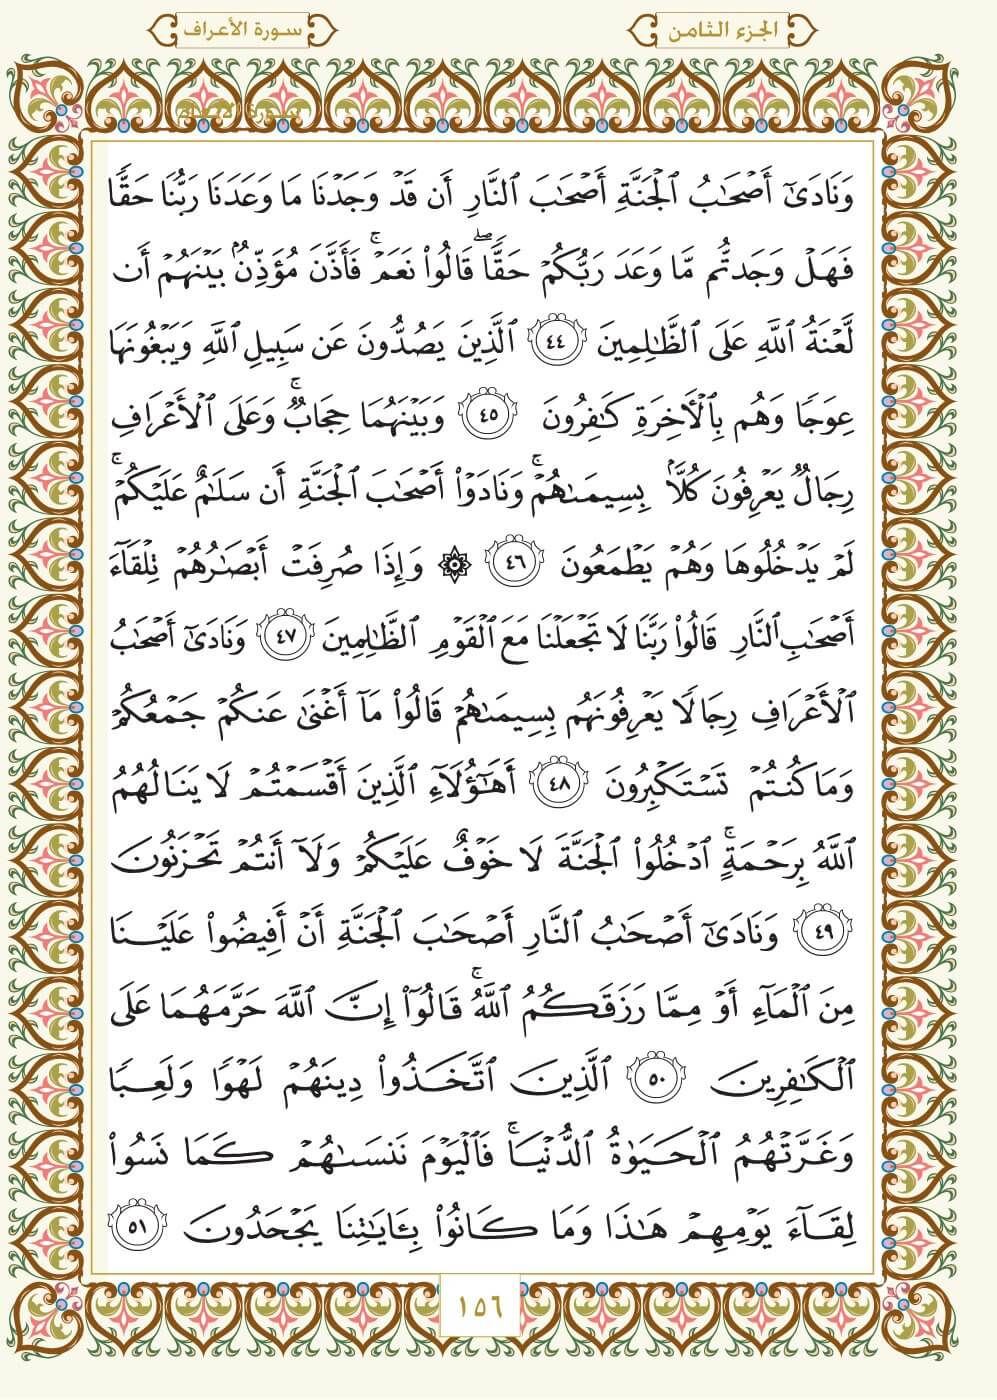 الجزء الثامن
سورة الأعراف
وَنَادَىٰٓ أَصْحَـٰبُ ٱلْجَنَّةِ أَصْحَـٰبَ ٱلنَّارِ أَن قَدْ وَجَدْنَا مَا وَعَدَنَا رَبُّنَا حَقًّا
فَهَلْ وَجَدتُّم مَّا وَعَدَ رَبُّكُمْ حَقًّا ۖ قَالُوا۟ نَعَمْ ۚ فَأَذَّنَ مُؤَذِّنٌۢ بَيْنَهُمْ أَن
لَّعْنَةُ ٱللَّهِ عَلَى ٱلظَّـٰلِمِينَ ٤٤ ٱلَّذِينَ يَصُدُّونَ عَن سَبِيلِ ٱللَّهِ وَيَبْغُونَهَا
عِوَجًا وَهُم بِٱلْـَٔاخِرَةِ كَـٰفِرُونَ ٤٥ وَبَيْنَهُمَا حِجَابٌ ۚ وَعَلَى ٱلْأَعْرَافِ
رِجَالٌ يَعْرِفُونَ كُلًّۢا بِسِيمَىٰهُمْ ۚ وَنَادَوْا۟ أَصْحَـٰبَ ٱلْجَنَّةِ أَن سَلَـٰمٌ عَلَيْكُمْ ۚ
لَمْ يَدْخُلُوهَا وَهُمْ يَطْمَعُونَ ٤٦ ۞ وَإِذَا صُرِفَتْ أَبْصَـٰرُهُمْ تِلْقَآءَ
أَصْحَـٰبِ ٱلنَّارِ قَالُوا۟ رَبَّنَا لَا تَجْعَلْنَا مَعَ ٱلْقَوْمِ ٱلظَّـٰلِمِينَ ٤٧ وَنَادَىٰٓ أَصْحَـٰبُ
ٱلْأَعْرَافِ رِجَالًا يَعْرِفُونَهُم بِسِيمَىٰهُمْ قَالُوا۟ مَآ أَغْنَىٰ عَنكُمْ جَمْعُكُمْ
وَمَا كُنتُمْ تَسْتَكْبِرُونَ ٤٨ أَهَـٰٓؤُلَآءِ ٱلَّذِينَ أَقْسَمْتُمْ لَا يَنَالُهُمُ
ٱللَّهُ بِرَحْمَةٍ ۚ ٱدْخُلُوا۟ ٱلْجَنَّةَ لَا خَوْفٌ عَلَيْكُمْ وَلَآ أَنتُمْ تَحْزَنُونَ
٤٩ وَنَادَىٰٓ أَصْحَـٰبُ ٱلنَّارِ أَصْحَـٰبَ ٱلْجَنَّةِ أَنْ أَفِيضُوا۟ عَلَيْنَا
مِنَ ٱلْمَآءِ أَوْ مِمَّا رَزَقَكُمُ ٱللَّهُ ۚ قَالُوٓا۟ إِنَّ ٱللَّهَ حَرَّمَهُمَا عَلَى
ٱلْكَـٰفِرِينَ ٥٠ ٱلَّذِينَ ٱتَّخَذُوا۟ دِينَهُمْ لَهْوًا وَلَعِبًا
وَغَرَّتْهُمُ ٱلْحَيَوٰةُ ٱلدُّنْيَا ۚ فَٱلْيَوْمَ نَنسَىٰهُمْ كَمَا نَسُوا۟
لِقَآءَ يَوْمِهِمْ هَـٰذَا وَمَا كَانُوا۟ بِـَٔايَـٰتِنَا يَجْحَدُونَ ٥١
١٥٦